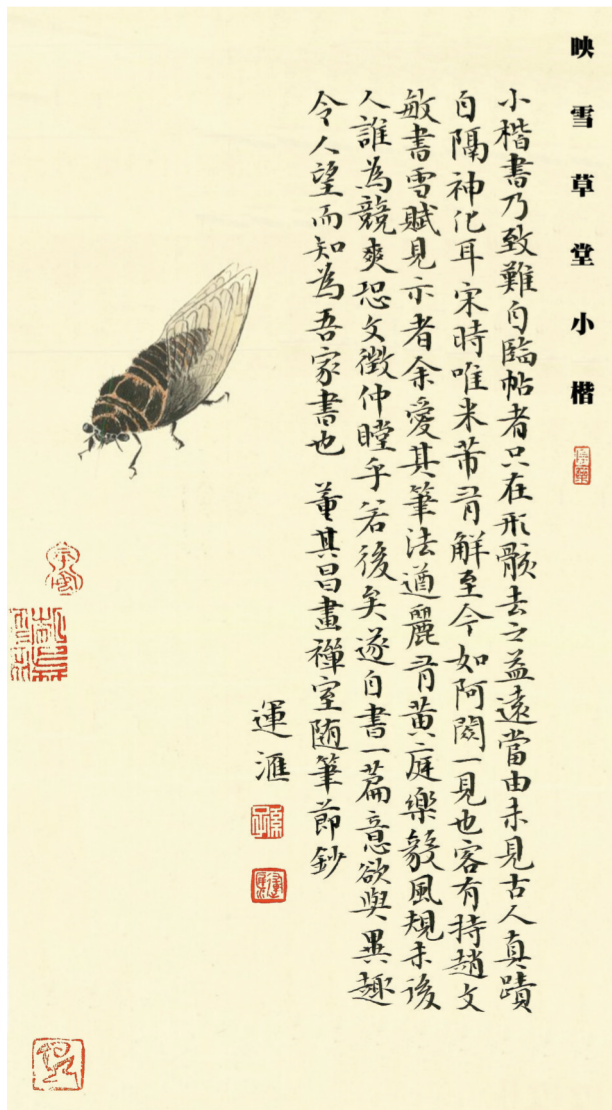 映雪草堂小楷
小楷書乃致難自臨帖者只在形骸去之益遠當由未見古人真蹟
自隔神化耳宋時唯米芾有解至今如阿閦一見也客有持趙文
敏書雪賦見示者余愛其筆法遒麗有黃庭樂毅風規未後
人誰為競爽恐文徵仲瞠乎若後矣遂自書一篇意欲與異趣
令人望而知為吾家書也 董其昌畫禪室随筆節鈔
運滙